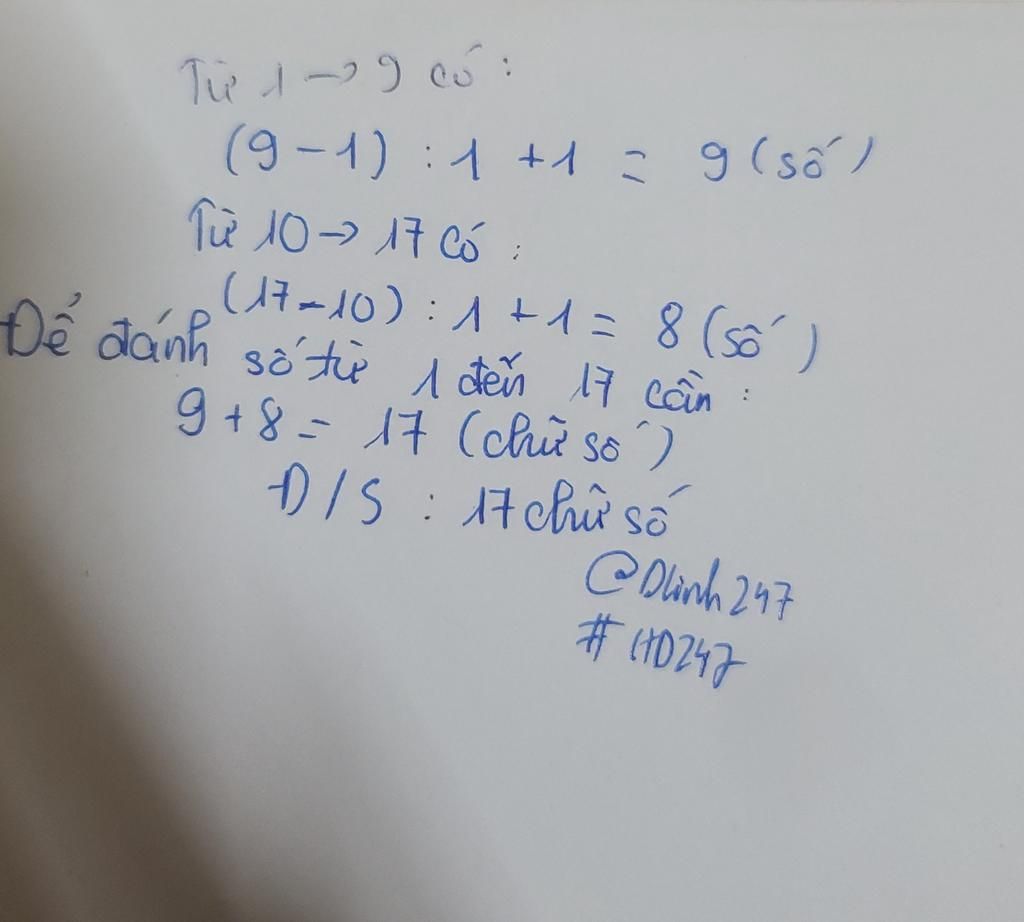 Từ 1 → 9 có :
(9 - 1) : 1 + 1 = 9 (số)
Từ 10 → 17 có :
(17 - 10) : 1 + 1 = 8 (số)
Để đánh số từ 1 đến 17 cần :
9 + 8 = 17 (chữ số)
Đ/S : 17 chữ số
@Dlinh247
#HD247